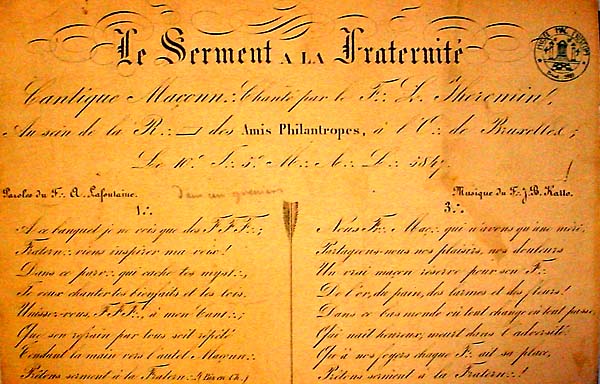 Le Serment A LA Fraternité
Cantique Maçonn∴ Chanté par le F∴ L. Theremin,
Au sein de la R∴ des Amis Philantropes, à l'O∴ de Bruxelles;
Le 10e J∴ 5e M∴ A∴ L∴ 5847
Paroles du F∴ A. Lafontaine.
Musique du F∴ J.B. Katto.
1∴
A ce banquet je ne vois que des F.F.F∴;
Fratern∴ viens inspirer ma voix!
Dans ce parv∴ qui cache les myst∴,
Je veux chanter tes bienfaits et tes lois.
Unissez-vous, F.F.F∴, à mon Cant∴;
Que son refrain par tous soit répété
Tendant la main vers l'autel Maçonn∴
Prêtons serment à la Fratern∴ (Bis en Ch.)
3∴
Nous F∴ Maç∴ qui n'avons qu'une mère,
Partageons-nous nos plaisirs, nos douleurs
Un vrai maçon réserve pour son F∴
De l'or, du pain, des larmes et des fleurs!
Dans ce bas monde où tout change où tout passe,
Qui nait heureux, meurt dans l'adversité.
Qu'à nos foyers chaque F∴ ait sa place,
Prêtons serment à la Fratern∴!